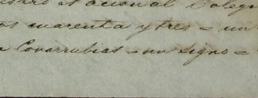 Nacional Coleg
marenta y tres = un
Covarrubias = un signo =